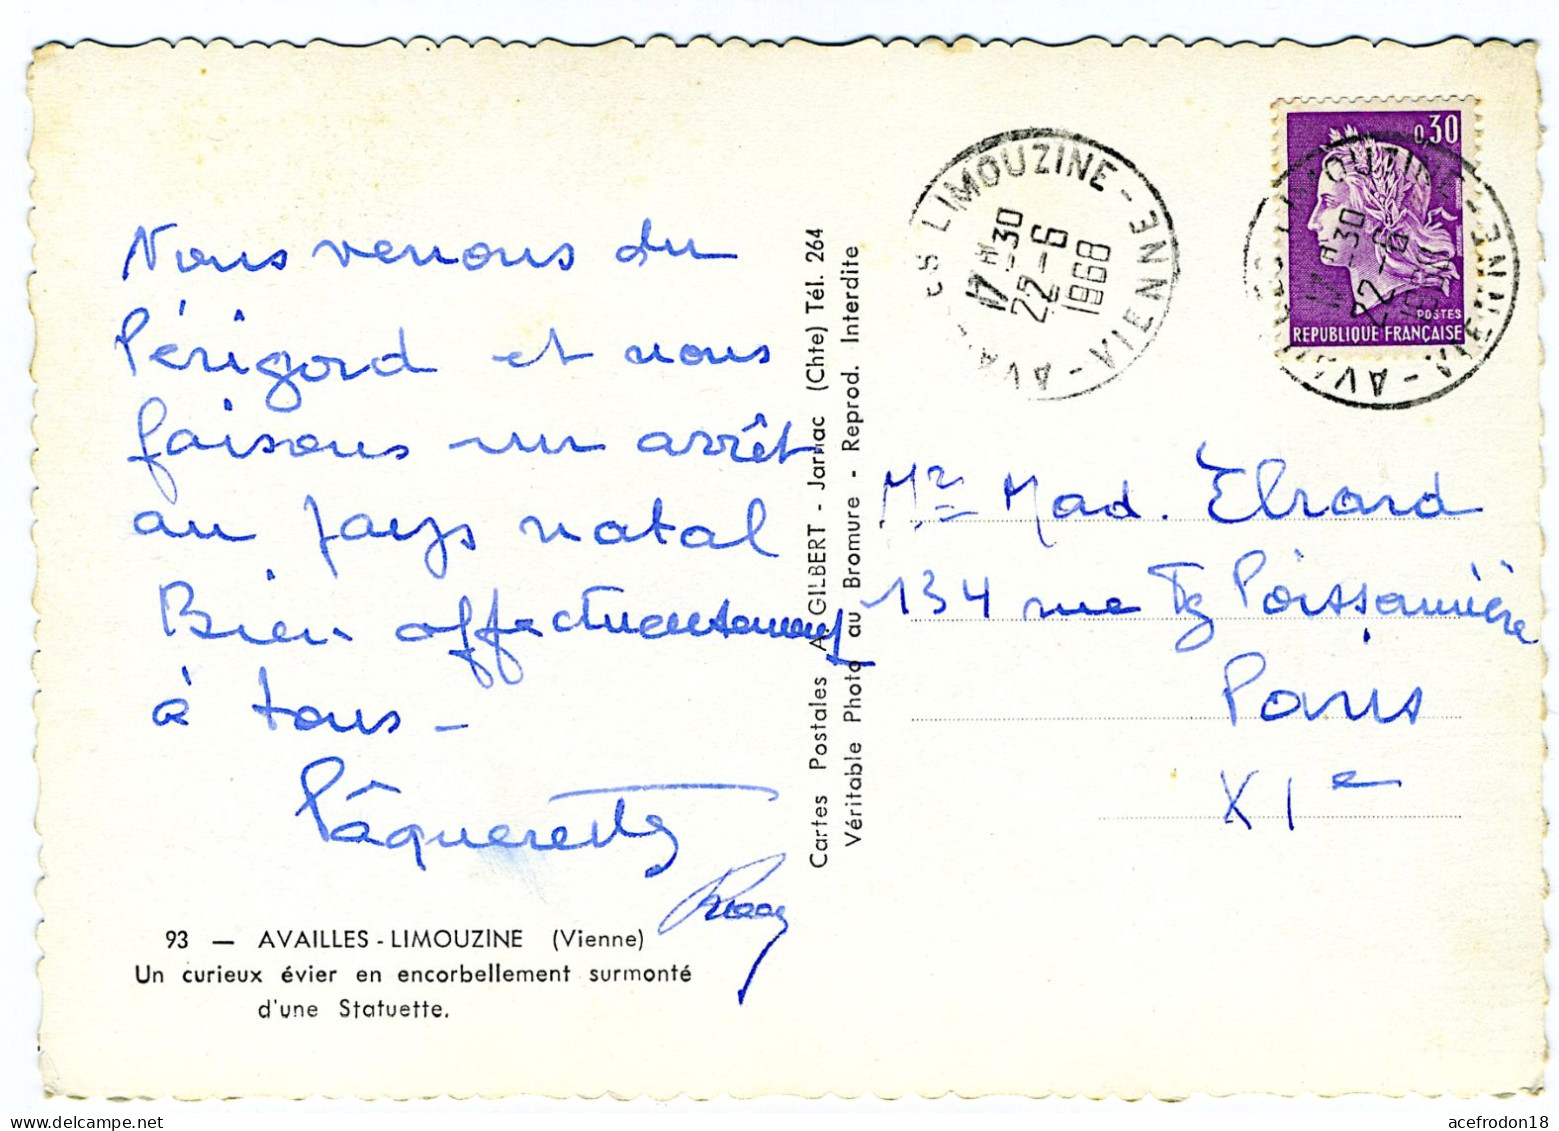 Nous venons du
Périgord et nous
faisons un arrêt
au pays natal
Bien affectueusement
à tous -
Pâquerette
93 — AVAILLES - LIMOUZINE (Vienne)
Un curieux évier en encorbellement surmonté
d'une Statuette.
Cartes Postales A. GILBERT - Jarnac (Chte) Tél. 264
Véritable Photo au Bromure - Reprod. Interdite
LIMOUZINE - VIENNE - AVA
17 H -30
22 - 6
1968
0,30
POSTES
REPUBLIQUE FRANÇAISE
LIMOUZINE - VIENNE - AVA
17 H -30
22 - 6
Mr Mad. Elrard
134 rue Fg Poissonnière
Paris
XIe
acefrodon18